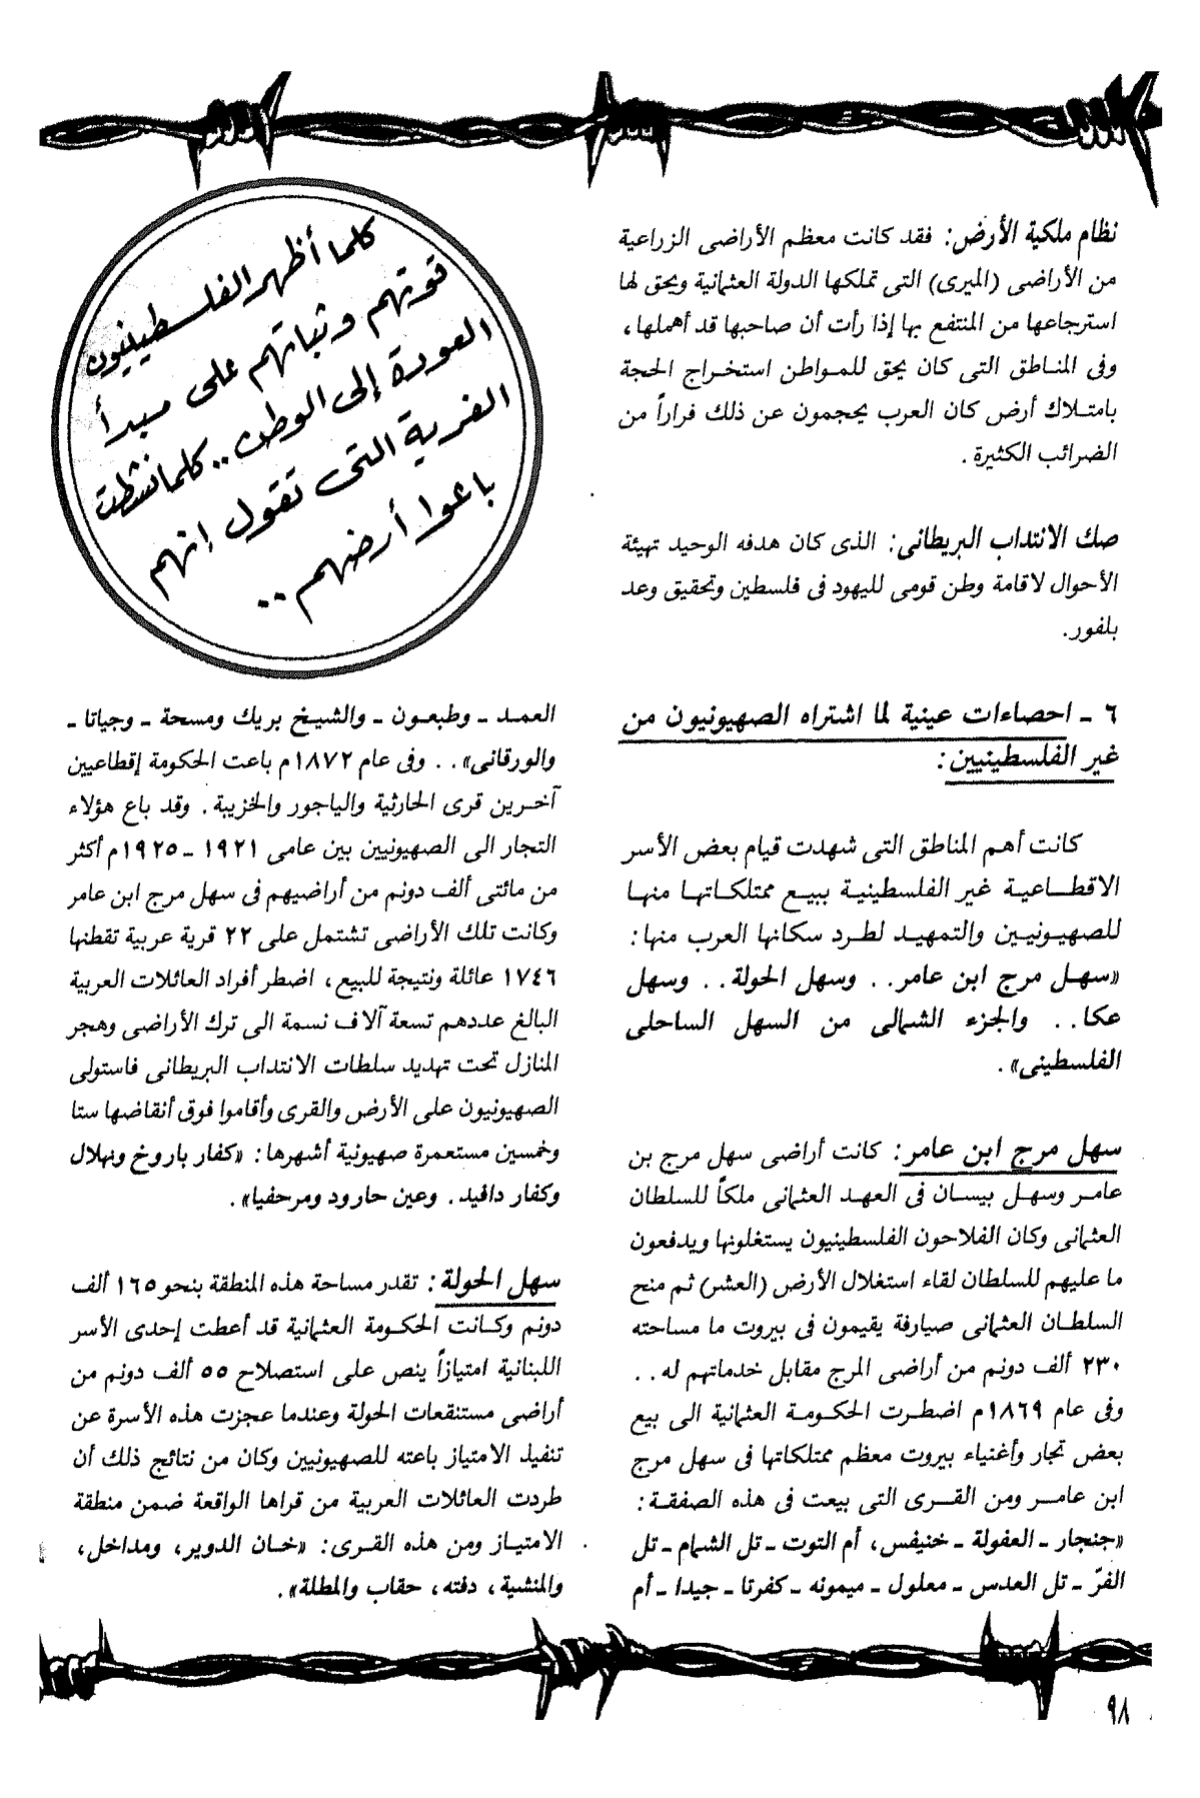 نظام ملكية الأرض: فقد كانت معظم الأراضى الزراعية
من الأراضى (الميرى) التى تملكها الدولة العثمانية ويحق لها
استرجاعها من المنتفع بها إذا رأت أن صاحبها قد أهملها،
وفى المناطق التى كان يحق للمواطن استخراج الحجة
بامتلاك أرض كان العرب يحجمون عن ذلك فراراً من
الضرائب الكثيرة.
صك الانتداب البريطانى: الذى كان هدفه الوحيد تهيئة
الأحوال لاقامة وطن قومى لليهود فى فلسطين وتحقيق وعد
بلفور.
٦ - احصاءات عينية لما اشتراه الصهيونيون من
غير الفلسطينيين:
كانت أهم المناطق التى شهدت قيام بعض الأسر
الاقطاعية غير الفلسطينية ببيع ممتلكاتها منها
للصهيونيين والتمهيد لطرد سكانها العرب منها:
«سهل مرج ابن عامر.. وسهل الحولة.. وسهل
عكا.. والجزء الشمالى من السهل الساحلى
الفلسطينى».
سهل مرج ابن عامر: كانت أراضى سهل مرج بن
عامر وسهل بيسان فى العهد العثمانى ملكاً للسلطان
العثمانى وكان الفلاحون الفلسطينيون يستغلونها ويدفعون
ما عليهم للسلطان لقاء استغلال الأرض (العشر) ثم منح
السلطان العثمانى صيارفة يقيمون فى بيروت ما مساحته
٢٣٠ ألف دونم من أراضى المرج مقابل خدماتهم له..
وفى عام ١٨٦٩م اضطرت الحكومة العثمانية الى بيع
بعض تجار وأغنياء بيروت معظم ممتلكاتها فى سهل مرج
ابن عامر ومن القرى التى بيعت فى هذه الصفقة:
«جنجار - العفولة - خنيفس، أم التوت - تل الشمام - تل
الفرّ - تل العدس - معلول - ميمونه - كفرتا - جيدا - أم
كلما أظهر الفلسطينيون
قوتهم وثباتهم على مبدأ
العودة إلى الوطن.. كلما نشطت
الفرية التى تقول إنهم
باعوا أرضهم..
العمد - وطبعون - والشيخ بريك ومسحة - وجياتا -
والورقانى».. وفى عام ١٨٧٢م باعت الحكومة إقطاعيين
آخرين قرى الحارثية والياجور والخزيبة. وقد باع هؤلاء
التجار الى الصهيونيين بين عامى ١٩٢١ - ١٩٢٥م أكثر
من مائتى ألف دونم من أراضيهم فى سهل مرج ابن عامر
وكانت تلك الأراضى تشتمل على ٢٢ قرية عربية تقطنها
١٧٤٦ عائلة ونتيجة للبيع، اضطر أفراد العائلات العربية
البالغ عددهم تسعة آلاف نسمة الى ترك الأراضى وهجر
المنازل تحت تهديد سلطات الانتداب البريطانى فاستولى
الصهيونيون على الأرض والقرى وأقاموا فوق أنقاضها ستا
وخمسين مستعمرة صهيونية أشهرها: «كفار باروخ ونهلال
وكفار دافيد. وعين حارود ومرحفيا».
سهل الحولة: تقدر مساحة هذه المنطقة بنحو ١٦٥ ألف
دونم وكانت الحكومة العثمانية قد أعطت إحدى الأسر
اللبنانية امتيازاً ينص على استصلاح ٥٥ ألف دونم من
أراضى مستنقعات الحولة وعندما عجزت هذه الأسرة عن
تنفيذ الامتياز باعته للصهيونيين وكان من نتائج ذلك أن
طردت العائلات العربية من قراها الواقعة ضمن منطقة
الامتياز ومن هذه القرى: «خان الدوير، ومداخل،
والمنشية، دفته، حقاب والمطلة».
٩٨